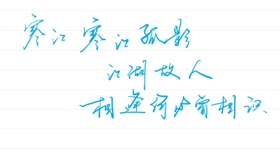 寒江寒江孤影
江湖故人
相逢何必曾相识